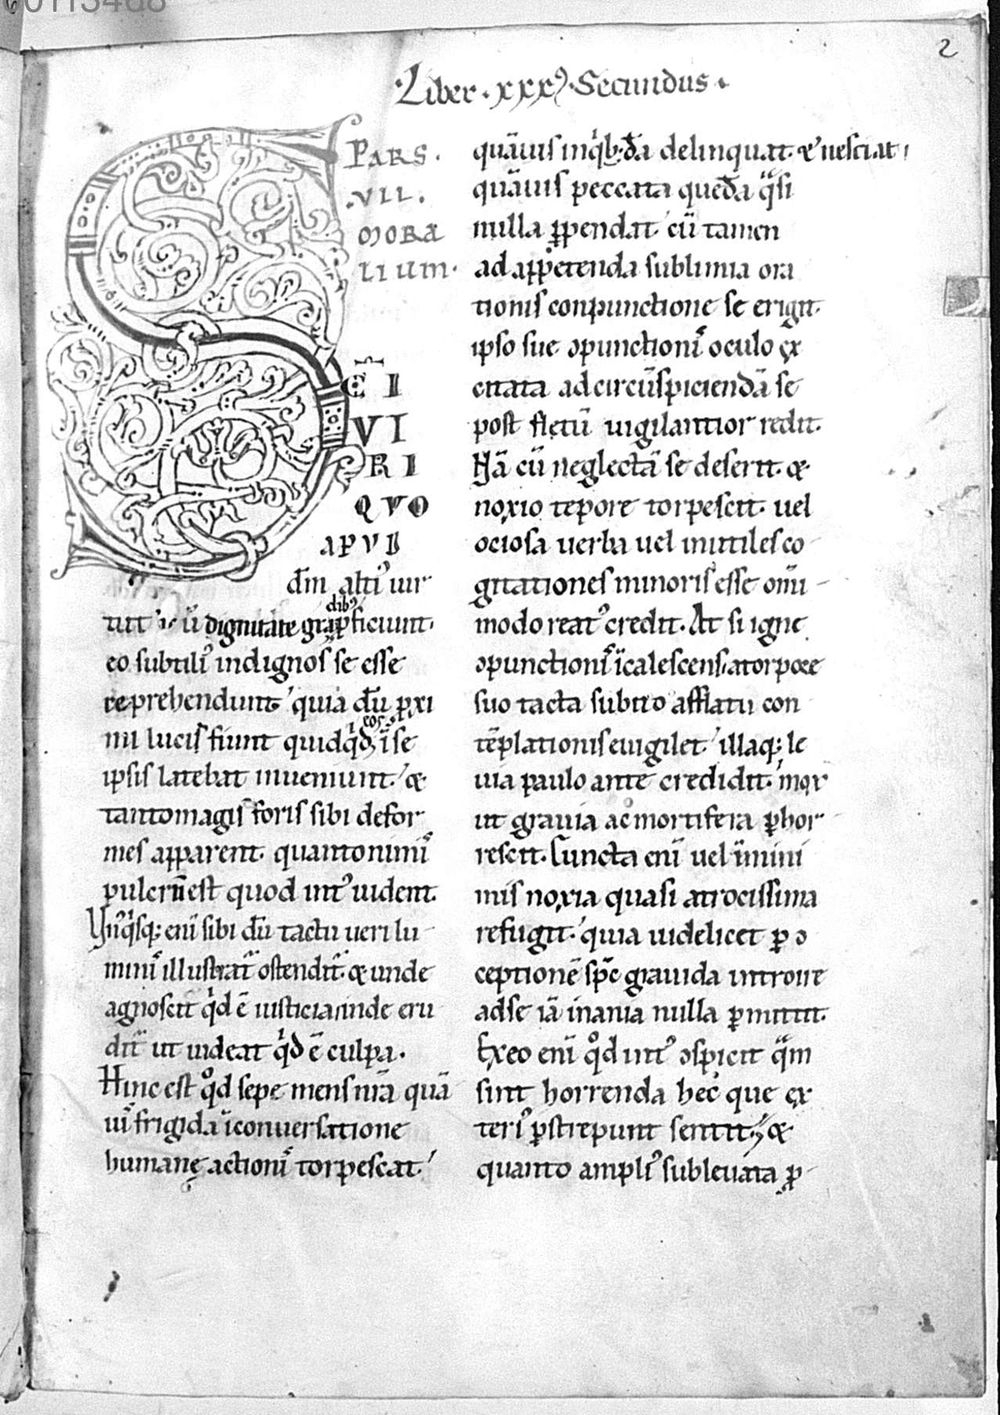 2
·Liber·xxxꝰ·Secundus·
PARS·
·VII·
MORA
LIUM·
S
C̄TI
VI
RI
QVO
APVD
dm̄ altiꝰ uir
tut· .i. ū dignitate gradibꝰ ꝓficiunt·
eo subtiliꝰ indignos se esse
reprehendunt· quia dū ꝓxi
mi lucis fiunt quidq̇d eos ī se
ipsis latebat inueniunt· ⁊
tantomagis foris sibi defor
mes apparent· quanto nimiꝰ
pulcrū est quod intꝰ uident·
Vnꝰq̇sq; eni sibi dū tactu ueri lu
minis illustrat̄ ostendit̄· ⁊ unde
agnoscit q̇d ē iusticia inde eru
dit̄ ut uideat q̇d ē culpa·
Hinc est qd̊ sepe mens nr̄a quā
uis frigida ī conuersatione
humanę actionis torpescat·
quāuis inq̇bꝰdā delinquat· ⁊ nesciat
quāuis peccata quedā q̄si
nulla ꝑpendat· cū tamen
ad appetenda sublimia ora
tionis conpunctione se erigit·
ipso sue ɔpunctionis oculo ex
citata ad circūspiciendā se
post fletū uigilantior redit·
Nā cū neglectā se deserit· ⁊
noxio tepore torpescit· uel
ociosa uerba uel inutiles co
gitationes minoris esse omī
modo reatꝰ credit· At si igne
ɔpunctionis īcalescens a torpore
suo tacta subito afflatu con
tēplationis euigilet· illa q; le
uia paulo ante credidit· mox
ut grauia ac mortifera ꝑhor
rescit· Cuncta enī uel ī mini
mis noxia quasi atrocissima
refugit· quia uidelicet ꝑ ɔ
ceptionē sp̄c grauida introire
ad se iā inania nulla ꝑmittit·
Ex eo enī qd̊ intꝰ ɔspicit q̄m
sint horrenda hec que ex
teriꝰ ꝑstrepunt sentit· ⁊
quanto ampliꝰ subleuata ꝓ